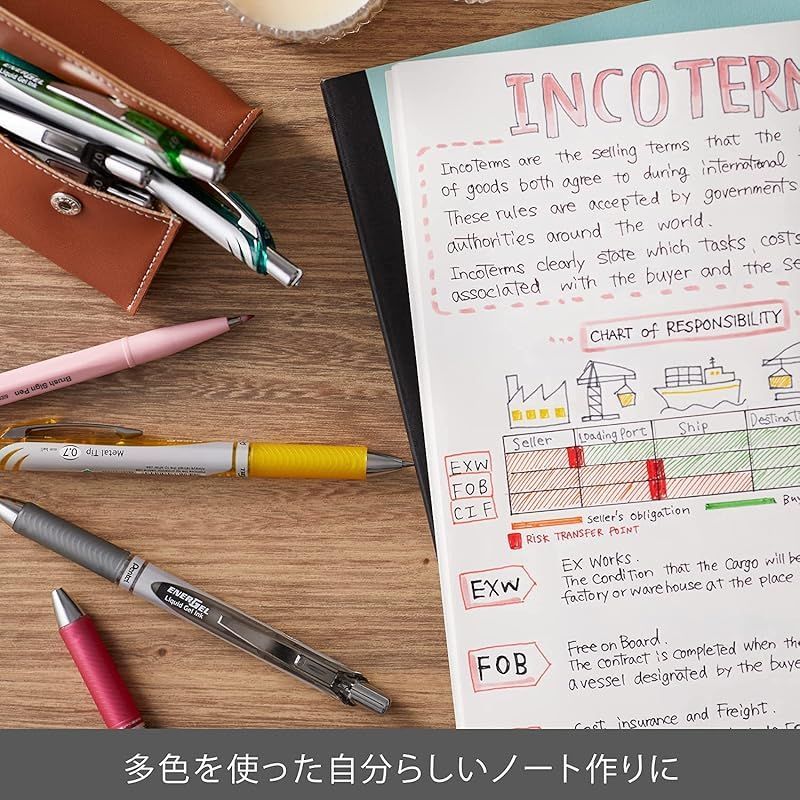 ENERGEL
Liquid Gel Ink
INCOTERM
Incoterms are the selling terms that the
of goods both agree to during international
These rules are accepted by governments
authorities around the world.
Incoterms clearly state which tasks, costs
associated with the buyer and the se
CHART of RESPONSIBILITY
Seller Loading Port Ship Destinati
EXW
FOB
CIF
Seller's obligation Bu
RISK TRANSFER POINT
EXW
EX Works.
The Condition that the Cargo will be
factory or warehouse at the place
FOB
Free on Board.
The contract is completed when the
a vessel designated by the buye
Cost, insurance and Freight.
Brush Sign Pen
Metal Tip 0.7
Pentel
ENERGEL
Liquid Gel Ink
多色を使った自分らしいノート作りに